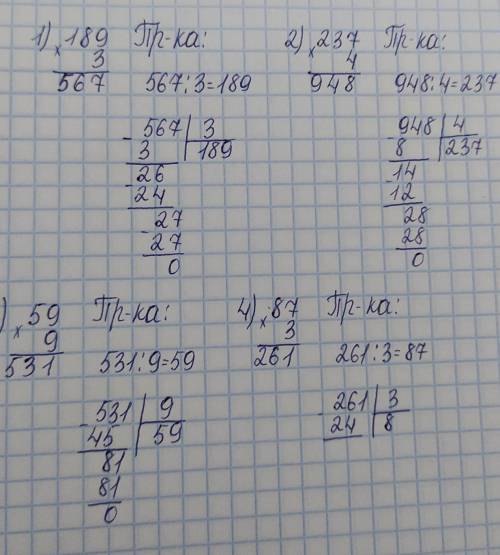 1) 189 Пр-ка:
× 3
567 567:3=189
- 567 | 3
3 189
- 26
24
- 27
27
0
2) 237 Пр-ка:
× 4
948 948:4=237
- 948 | 4
8 237
- 14
12
28
28
0
) 59 Пр-ка:
× 9
531 531:9=59
- 531 | 9
45 59
81
81
0
4) 87 Пр-ка:
× 3
261 261:3=87
- 261 | 3
24 8